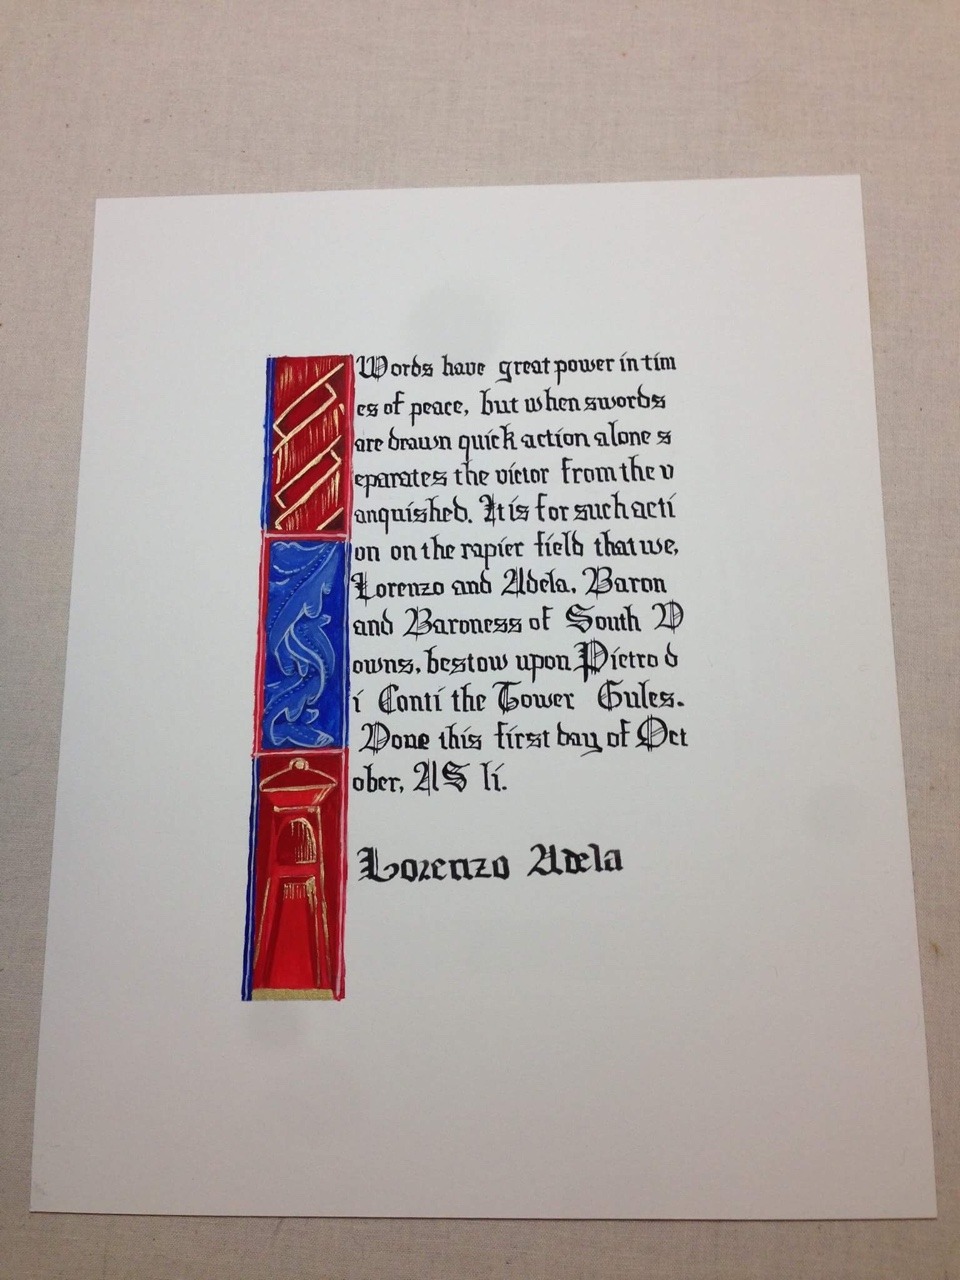 Words have great power in tim
es of peace, but when swords
are drawn quick action alone s
eparates the victor from the v
anquished. It is for such acti
on on the rapier field that we,
Lorenzo and Adela, Baron
and Baroness of South D
owns, bestow upon Pietro d
i Conti the Tower Gules.
Done this first day of Oct
ober, AS li.
Lorenzo Adela